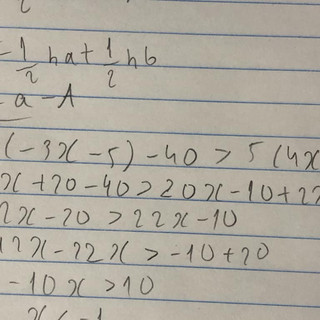 = 1/2 ha + 1/2 hb
= a - A
(-3x - 5) - 40 > 5 (4x
x + 20 - 40 > 20x - 10 + 2x
2x - 20 > 22x - 10
12x - 22x > -10 + 20
-10x > 10
x < -1